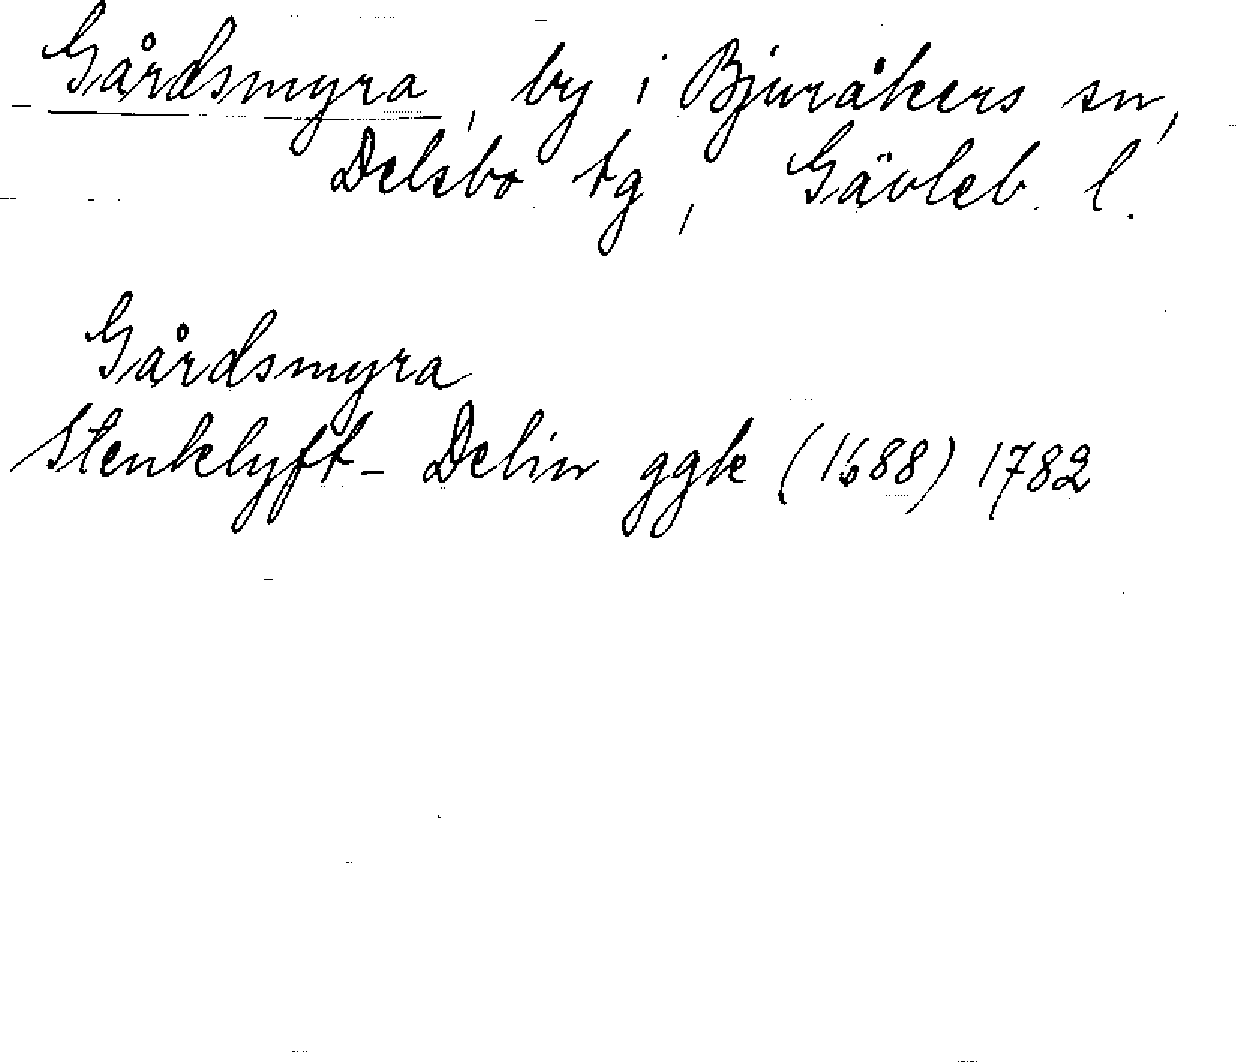 Gårdsmyra, by i Bjuråkers sn,
Delsbo tg, Gävleb. l.
Gårdsmyra
Stenklyft- Delin ggk (1688) 1782